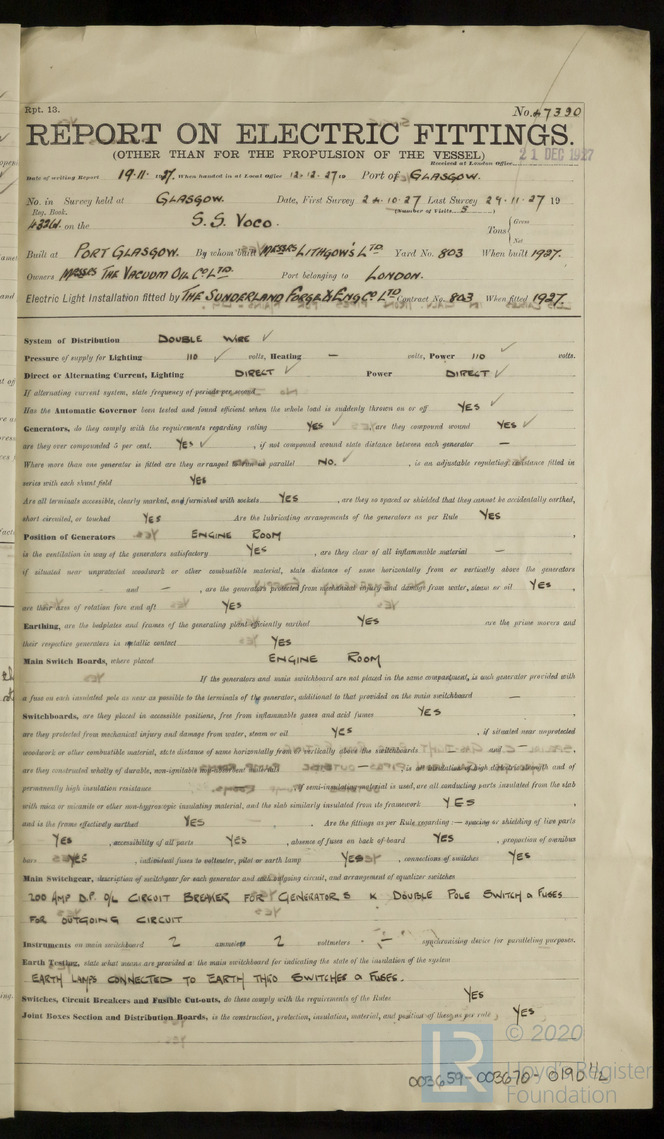 Rpt. 13.
No. 47390
REPORT ON ELECTRIC FITTINGS.
(OTHER THAN FOR THE PROPULSION OF THE VESSEL)
Received at London Office 21 DEC 1927
Date of writing Report 19·11· 1927. When handed in at Local Office 12·12·27 19 Port of GLASGOW.
No. in Survey held at GLASGOW. Date, First Survey 24-10-27 Last Survey 29-11-27 19
Reg. Book. (Number of Visits 5)
on the S.S. VOCO. Tons { Gross Net
Built at PORT GLASGOW. By whom built MESSRS LITHGOW'S LTD Yard No. 803 When built 1927.
Owners MESSRS THE VACUUM OIL CO LTD. Port belonging to LONDON.
Electric Light Installation fitted by THE SUNDERLAND FORGE & ENG CO LTD Contract No. 803 When fitted 1927.
System of Distribution DOUBLE WIRE ✓
Pressure of supply for Lighting 110 ✓ volts, Heating — volts, Power 110 ✓ volts.
Direct or Alternating Current, Lighting DIRECT ✓ Power DIRECT ✓
If alternating current system, state frequency of periods per second
Has the Automatic Governor been tested and found efficient when the whole load is suddenly thrown on or off YES ✓
Generators, do they comply with the requirements regarding rating YES ✓, are they compound wound YES ✓
are they over compounded 5 per cent. YES ✓, if not compound wound state distance between each generator —
Where more than one generator is fitted are they arranged to run in parallel NO. ✓, is an adjustable regulating resistance fitted in
series with each shunt field YES
Are all terminals accessible, clearly marked, and furnished with sockets YES, are they so spaced or shielded that they cannot be accidentally earthed,
short circuited, or touched YES Are the lubricating arrangements of the generators as per Rule YES
Position of Generators ENGINE ROOM,
is the ventilation in way of the generators satisfactory YES, are they clear of all inflammable material —
if situated near unprotected woodwork or other combustible material, state distance of same horizontally from or vertically above the generators
— and —, are the generators protected from mechanical injury and damage from water, steam or oil YES,
are their axes of rotation fore and aft YES
Earthing, are the bedplates and frames of the generating plant efficiently earthed YES are the prime movers and
their respective generators in metallic contact YES
Main Switch Boards, where placed ENGINE ROOM
If the generators and main switchboard are not placed in the same compartment, is each generator provided with
a fuse on each insulated pole as near as possible to the terminals of the generator, additional to that provided on the main switchboard —
Switchboards, are they placed in accessible positions, free from inflammable gases and acid fumes YES,
are they protected from mechanical injury and damage from water, steam or oil YES, if situated near unprotected
woodwork or other combustible material, state distance of same horizontally from or vertically above the switchboards — and —,
are they constructed wholly of durable, non-ignitable non-absorbent materials —, is all insulation of high dielectric strength and of
permanently high insulation resistance, if semi-insulating material is used, are all conducting parts insulated from the slab
with mica or micanite or other non-hygroscopic insulating material, and the slab similarly insulated from its framework YES,
and is the frame effectively earthed YES. Are the fittings as per Rule regarding:— spacing or shielding of live parts
YES, accessibility of all parts YES, absence of fuses on back of board YES, proportion of omnibus
bars YES, individual fuses to voltmeter, pilot or earth lamp YES, connections of switches YES
Main Switchgear, description of switchgear for each generator and each outgoing circuit, and arrangement of equalizer switches
200 AMP D.P. O/L CIRCUIT BREAKER FOR GENERATORS & DOUBLE POLE SWITCH & FUSES
FOR OUTGOING CIRCUIT
Instruments on main switchboard 2 ammeters 2 voltmeters — synchronising device for paralleling purposes.
Earth Testing, state what means are provided at the main switchboard for indicating the state of the insulation of the system
EARTH LAMPS CONNECTED TO EARTH THRO SWITCHES & FUSES.
Switches, Circuit Breakers and Fusible Cut-outs, do these comply with the requirements of the Rules YES
Joint Boxes Section and Distribution Boards, is the construction, protection, insulation, material, and position of these as per rule YES
© 2020
Lloyd's Register
Foundation
LR
003659-003670-0190 1/2